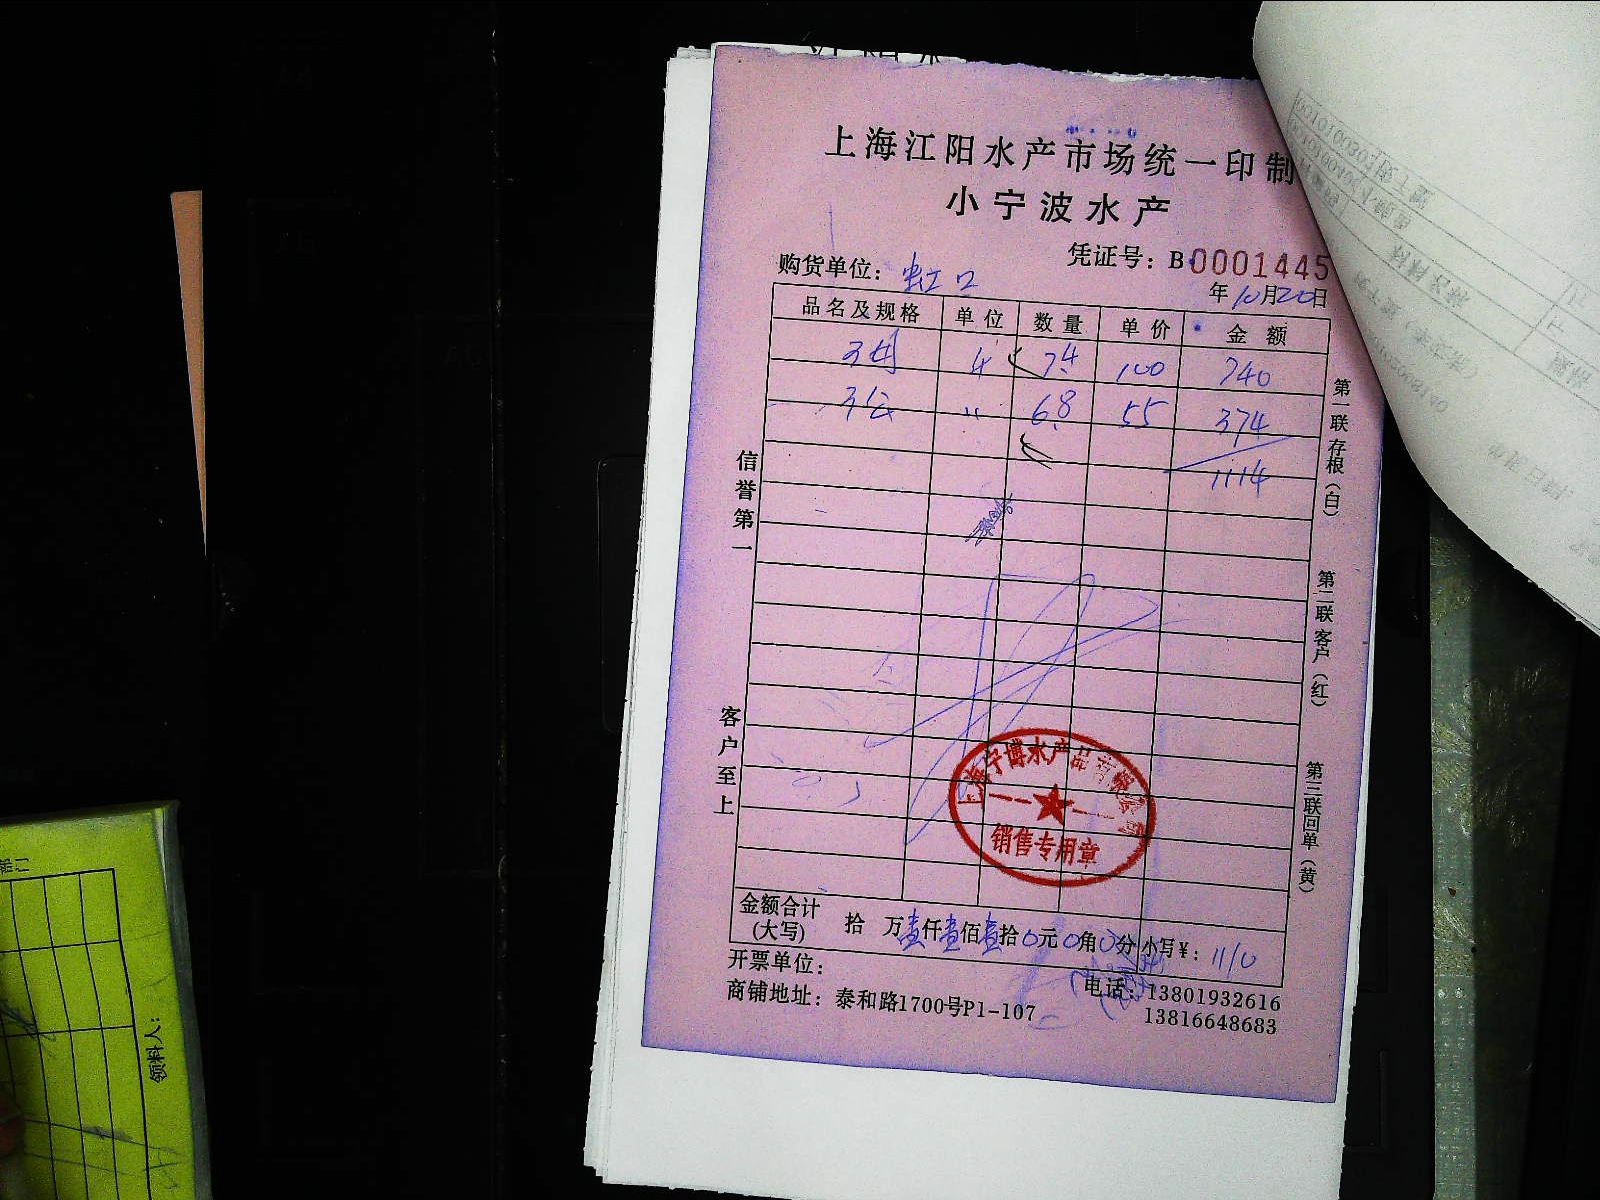 上海江阳水产市场统一印制
小宁波水产
凭证号：B 0001445
购货单位：虹口
年10月20日
品名及规格 单位 数量 单价 金额
3母 4 7.4 100 740
3公 〃 6.8 55 374
1114
信誉第一
客户至上
第一联存根（白）
第二联客户（红）
第三联回单（黄）
上海宁博水产品有限公司
销售专用章
金额合计（大写） 拾 万壹仟壹佰壹拾0元0角0分 小写¥：1110
开票单位：
电话：13801932616
13816648683
商铺地址：泰和路1700号P1-107
领料人：